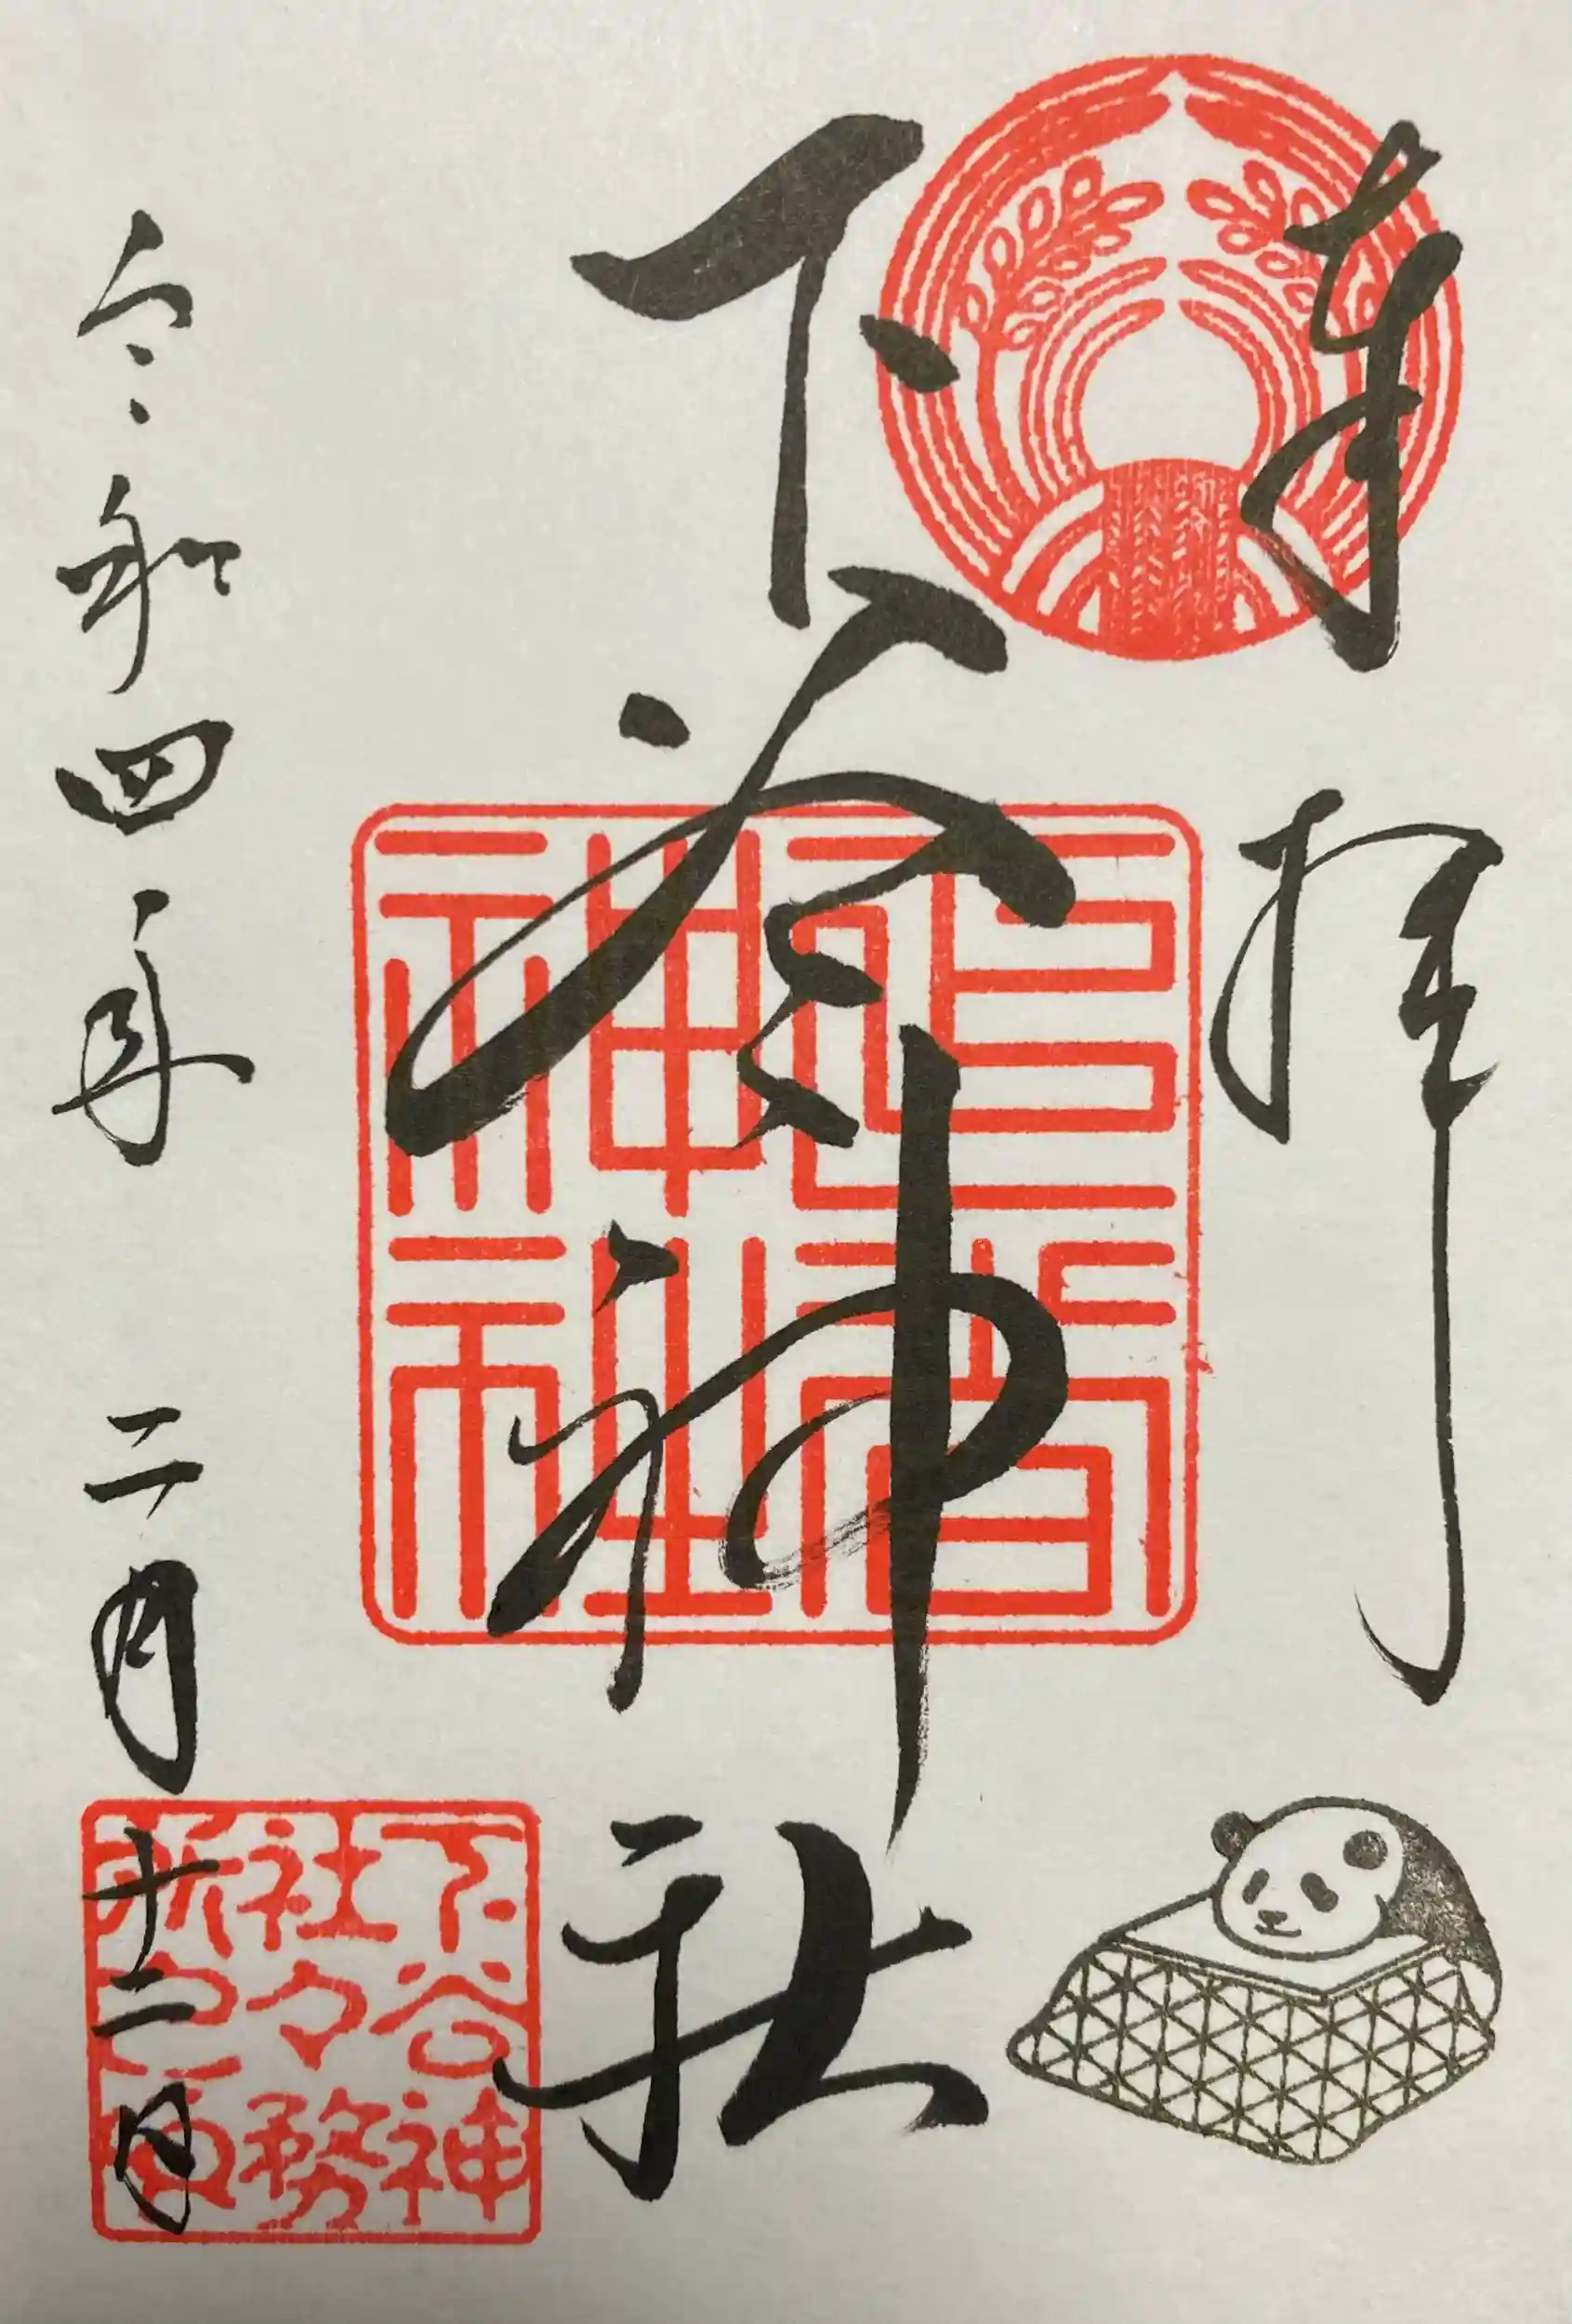 奉拝
下谷神社
令和四年 二月十二日
下谷神
社々務
所之印